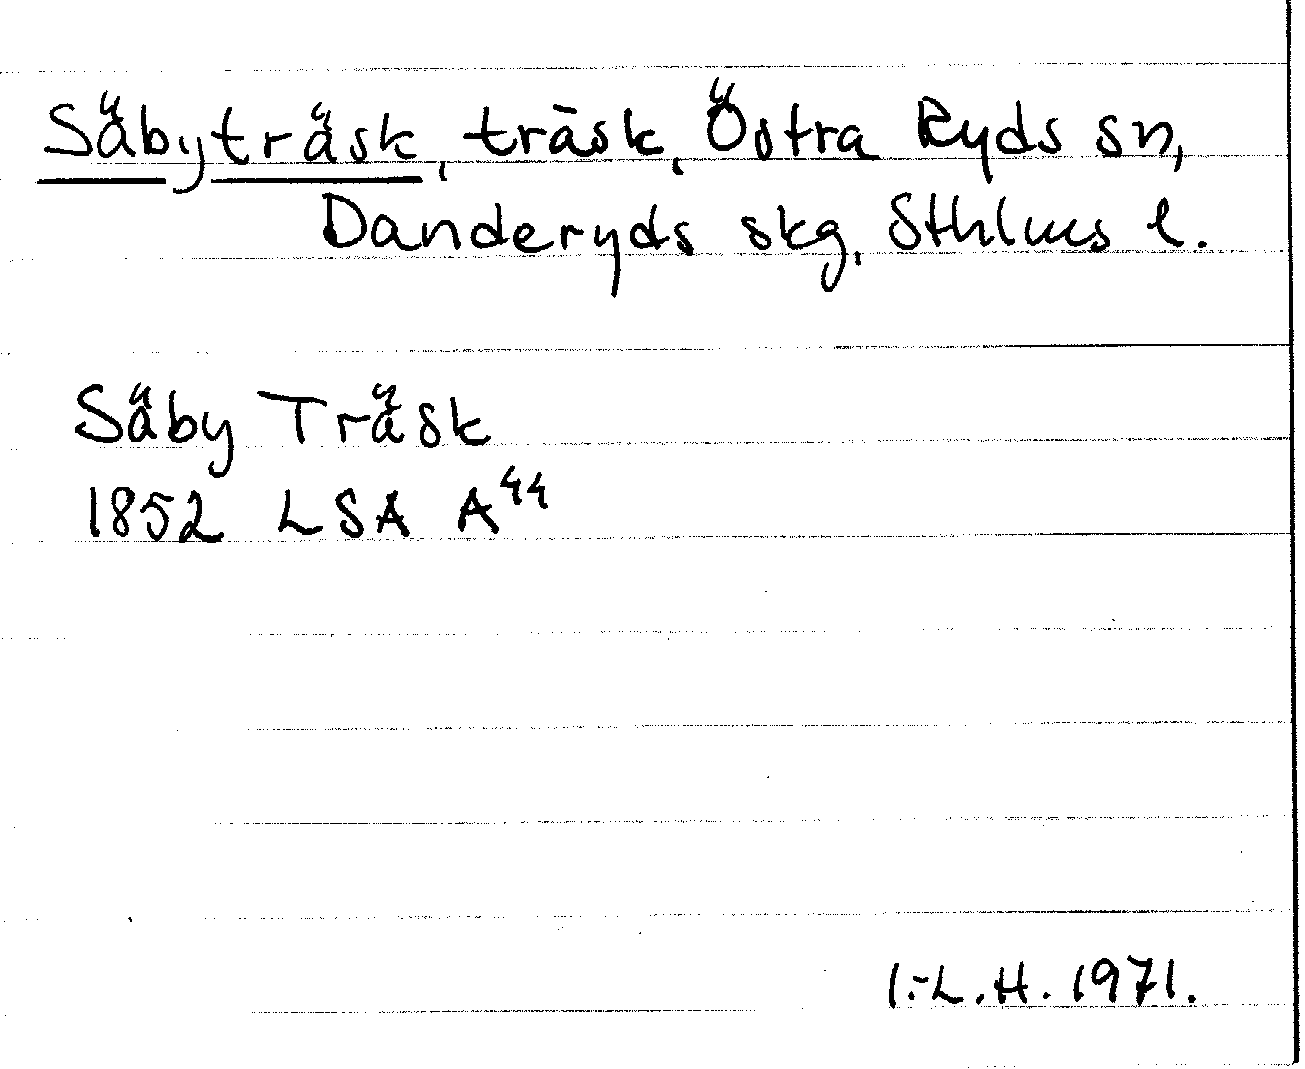 Säbyträsk, träsk, Östra Ryds sn,
Danderyds skg, Sthlms l.
Säby Träsk
1852 LSA A⁴⁴
I.-L.H. 1971.